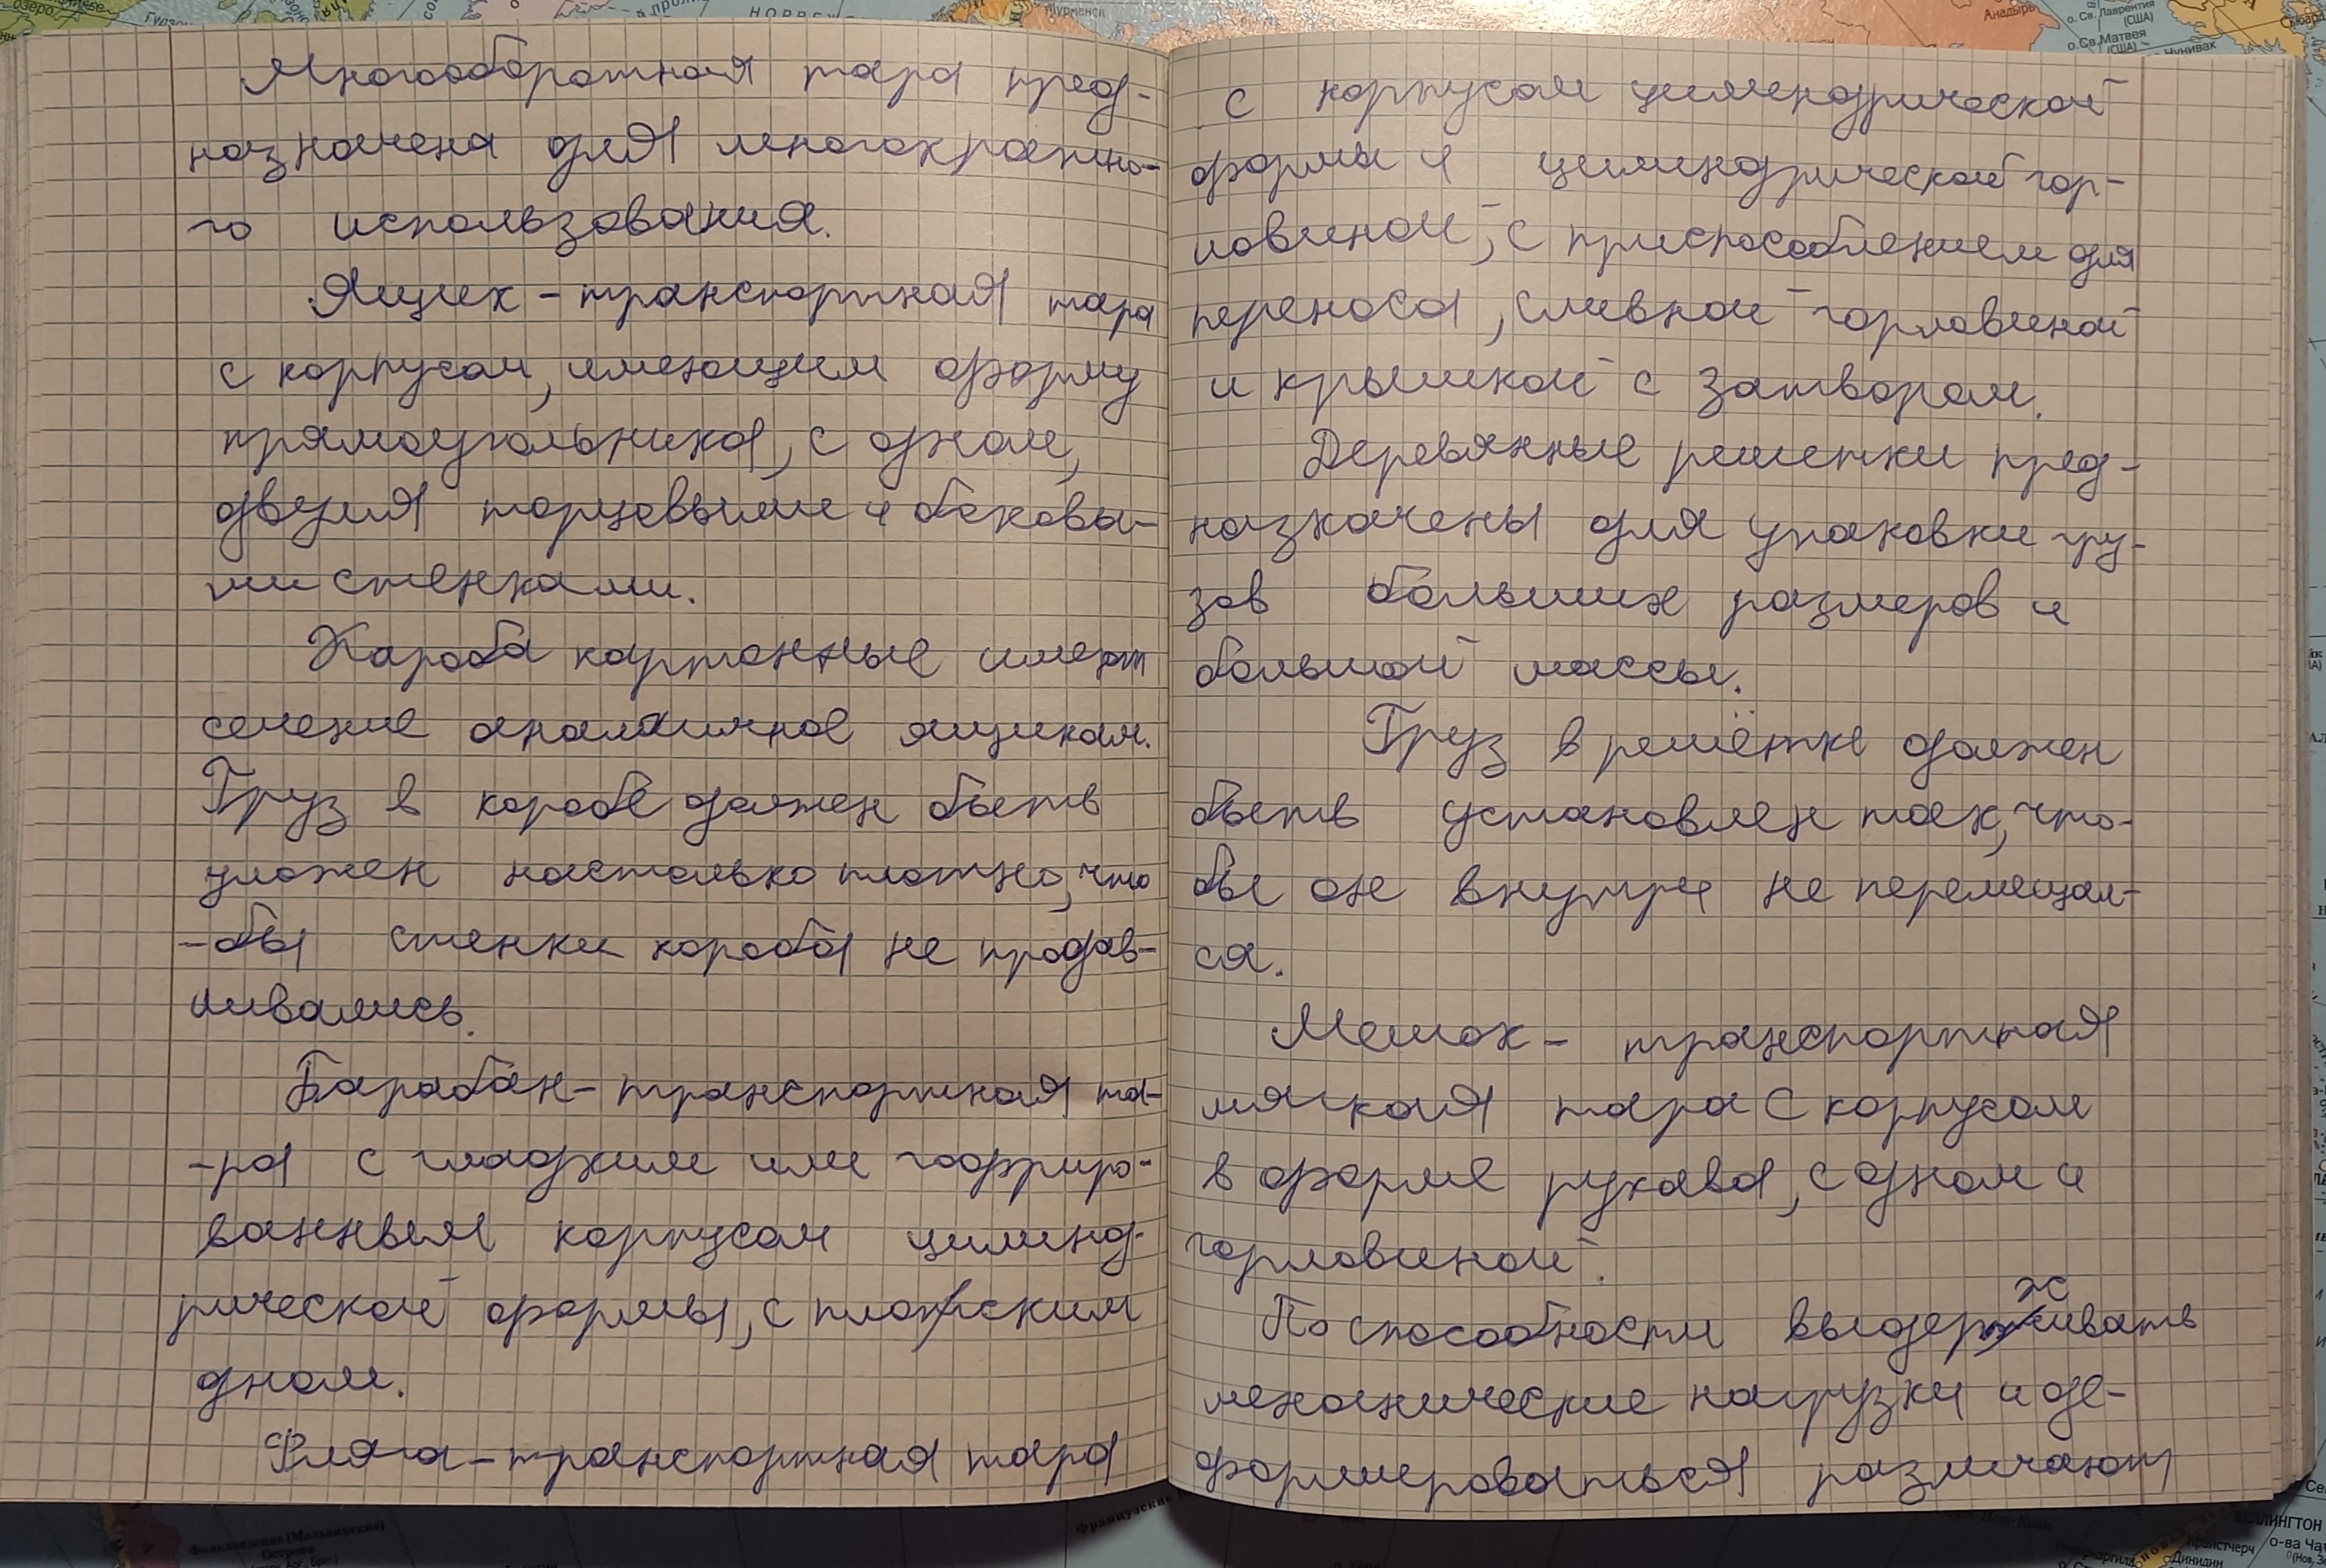 Многооборотная тара пред-
назначена для многократно-
го использования.
Ящик - транспортная тара
с корпусом, имеющим форму
прямоугольника, с дном,
двумя торцевыми и боковы-
ми стенками.
Короба картонные имеют
сечение аналогичное ящикам.
Груз в коробе должен быть
уложен настолько плотно, что
-бы стенки короба не продав-
ливались.
Барабан - транспортная та-
-ра с гладким или гофриро-
ванным корпусом цилинд-
рической формы, с плоским
дном.
Фляга - транспортная тара
с корпусом цилиндрической
формы и цилиндрической гор-
ловиной, с приспособлением для
переноса, сливной горловиной
и крышкой с затвором.
Деревянные решетки пред-
назначены для упаковки гру-
зов больших размеров и
большой массы.
Груз в решётке должен
быть установлен так, что-
бы он внутри не перемещал-
ся.
Мешок - транспортная
мягкая тара с корпусом
в форме рукава, с дном и
горловиной.
По способности выдерживать
механические нагрузки и де-
формироваться различают